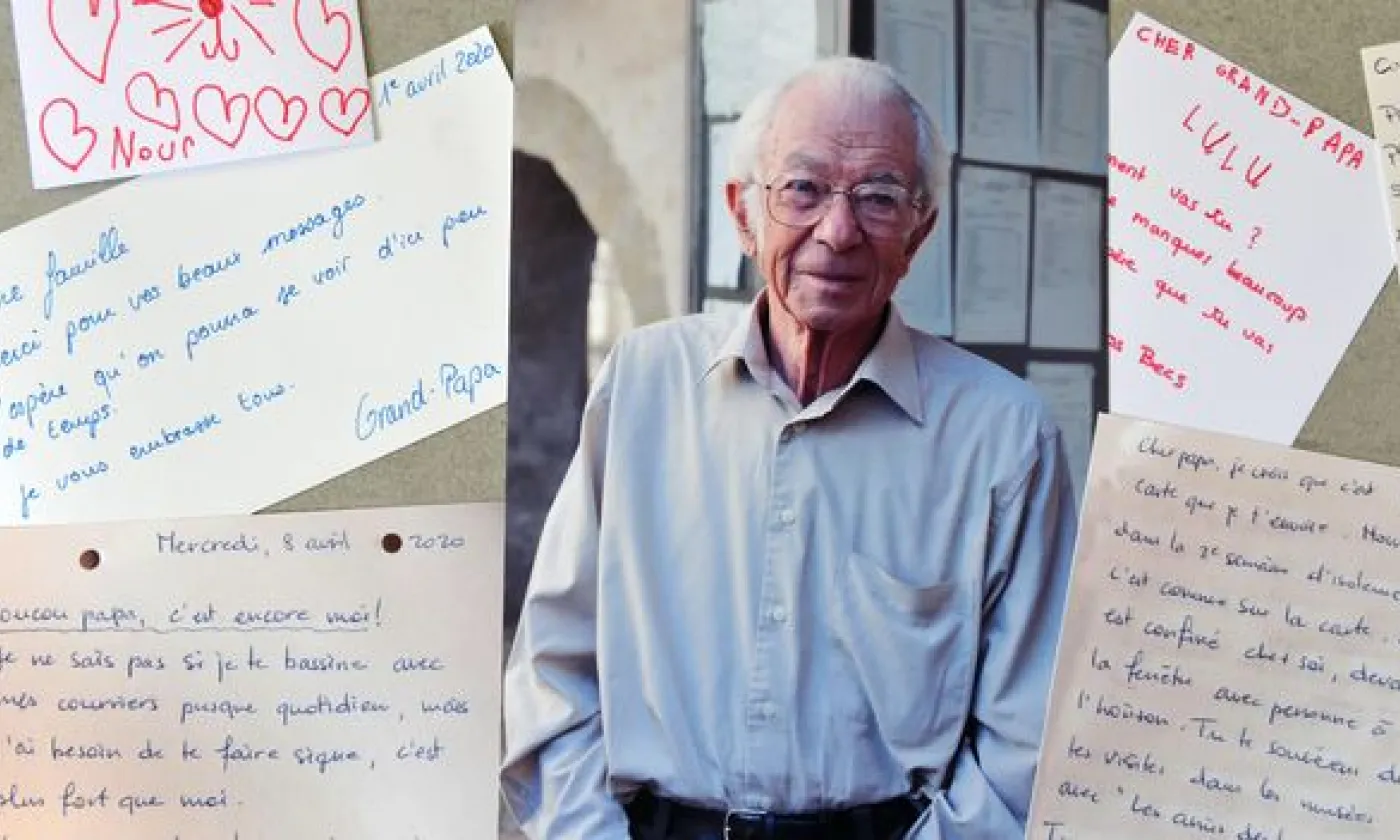 Nour
1e avril 2020
famille
pour vos beaux messages.
qu'on pourra se voir d'ici peu
de temps.
je vous embrasse tous.
Grand-Papa
Mercredi, 8 avril 2020
oucou papa, c'est encore moi!
je ne sais pas si je te bassine avec
mes courriers presque quotidien, mais
j'ai besoin de te faire signe, c'est
plus fort que moi.
CHER GRAND-PAPA
LULU
ment vas tu ?
manques beaucoup
que tu vas
Becs
Cher papa, je crois que c'est
carte que je t'envoie. Nous
dans la 2e semaine d'isoleme
c'est comme sur la carte.
est confiné chez soi, deva
la fenêtre avec personne à
l'horizon. Tu te souviens de
tes visites dans les musées
avec "Les amis de